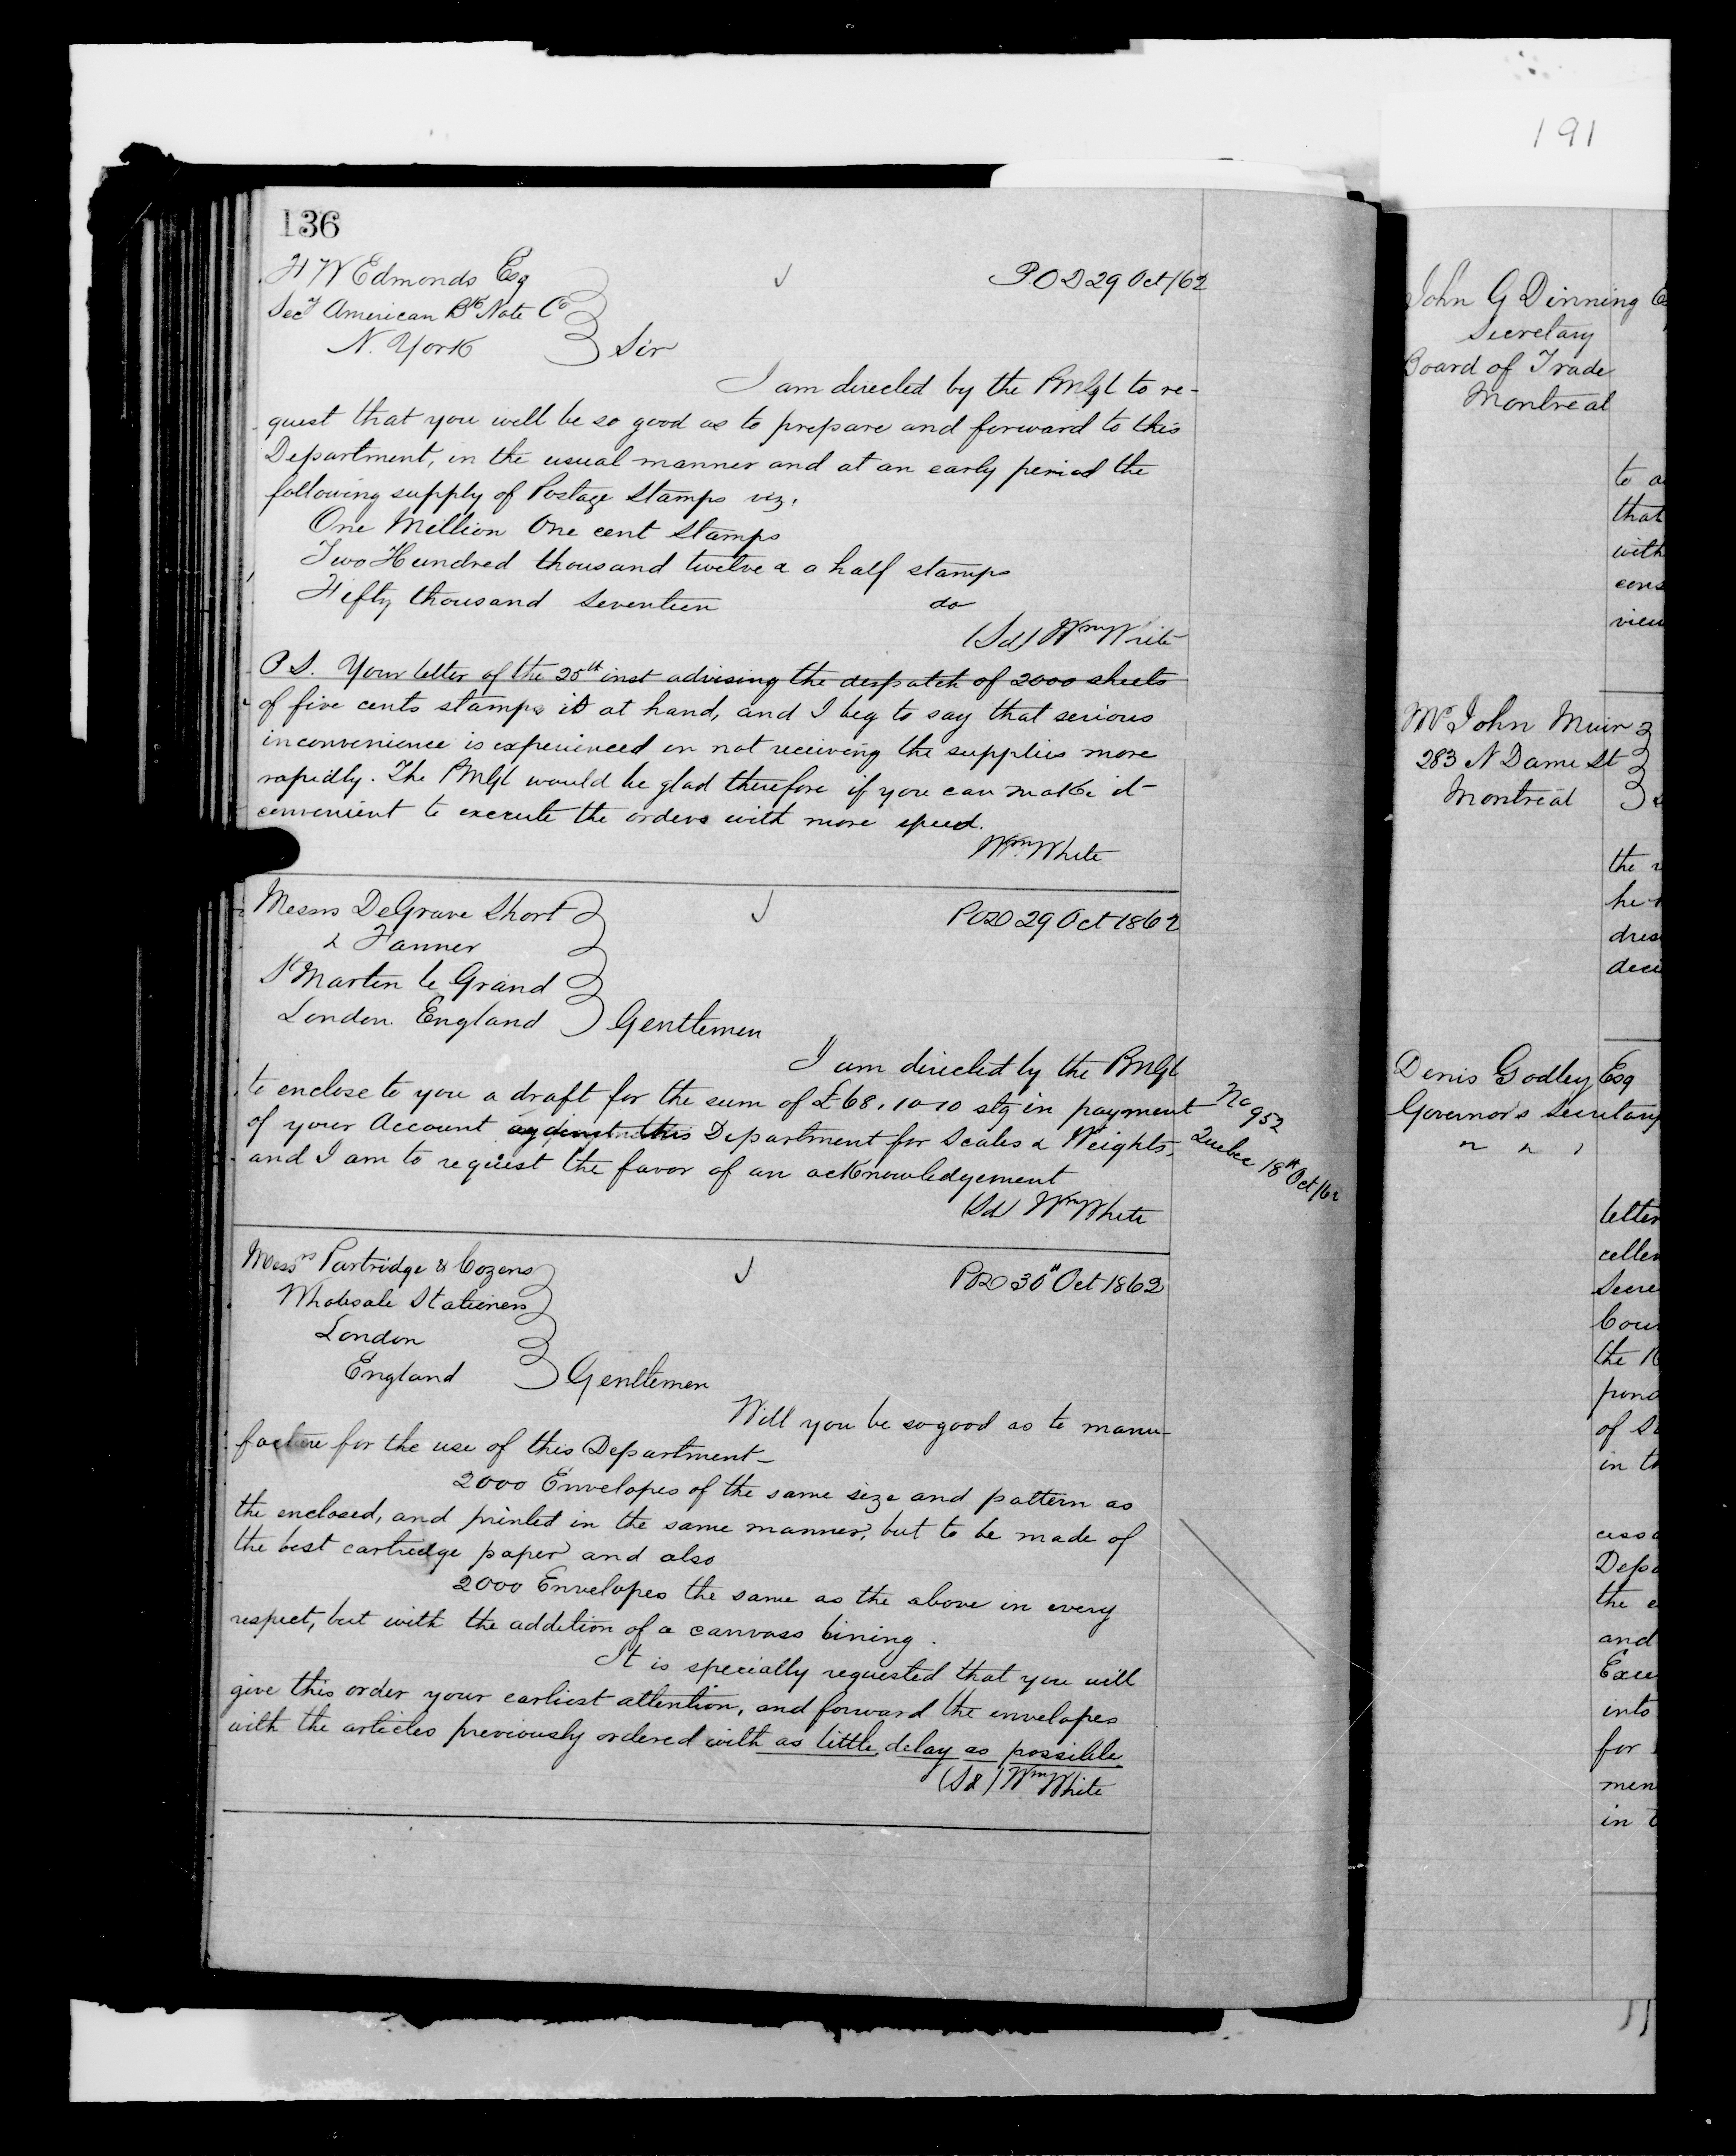 191
136
F W Edmonds Esq
Secy American Bk Note Co
N. York
Sir
P O D 29 Oct/62
I am directed by the PMGl to re-
quest that you will be so good as to prepare and forward to this
Department, in the usual manner and at an early period the
following supply of Postage Stamps viz.
One Million One cent Stamps
Two Hundred thousand twelve & a half stamps
Fifty thousand Seventeen do
(Sd) Wm White
P S. Your letter of the 25th inst advising the despatch of 2000 sheets
of five cents stamps is at hand, and I beg to say that serious
inconvenience is experienced in not receiving the supplies more
rapidly. The PMGl would be glad therefore if you can make it
convenient to execute the orders with more speed.
Wm White
Messrs DeGrave Short
& Fanner
St Martin le Grand
London England
Gentlemen
POD 29 Oct 1862
I am directed by the PMGl
to enclose to you a draft for the sum of £68.10.10 stg in payment
of your Account against this Department for Scales & Weights,
and I am to request the favor of an acknowledgement
(Sd) Wm White
No 952
Quebec 18th Oct/62
Messrs Partridge & Cozens
Wholesale Stationers
London
England
Gentlemen
POD 30th Oct 1862
Will you be so good as to manu-
facture for the use of this Department-
2000 Envelopes of the same size and pattern as
the enclosed, and printed in the same manner, but to be made of
the best cartridge paper and also
2000 Envelopes the same as the above in every
respect, but with the addition of a canvass lining.
It is specially requested that you will
give this order your earliest attention, and forward the envelopes
with the articles previously ordered with as little delay as possible
(Sd) Wm White
John G Dinning
Secretary
Board of Trade
Montreal
to
that
with
cons
view
Mr John Muir
283 N Dame St
Montreal
the
he
dres
deci
Denis Godley Esq
Governor's Secretary
" " "
letter
cellen
Secre
Coun
the
pond
of
in th
cess
Depa
the
and
Exce
into
for
men
in